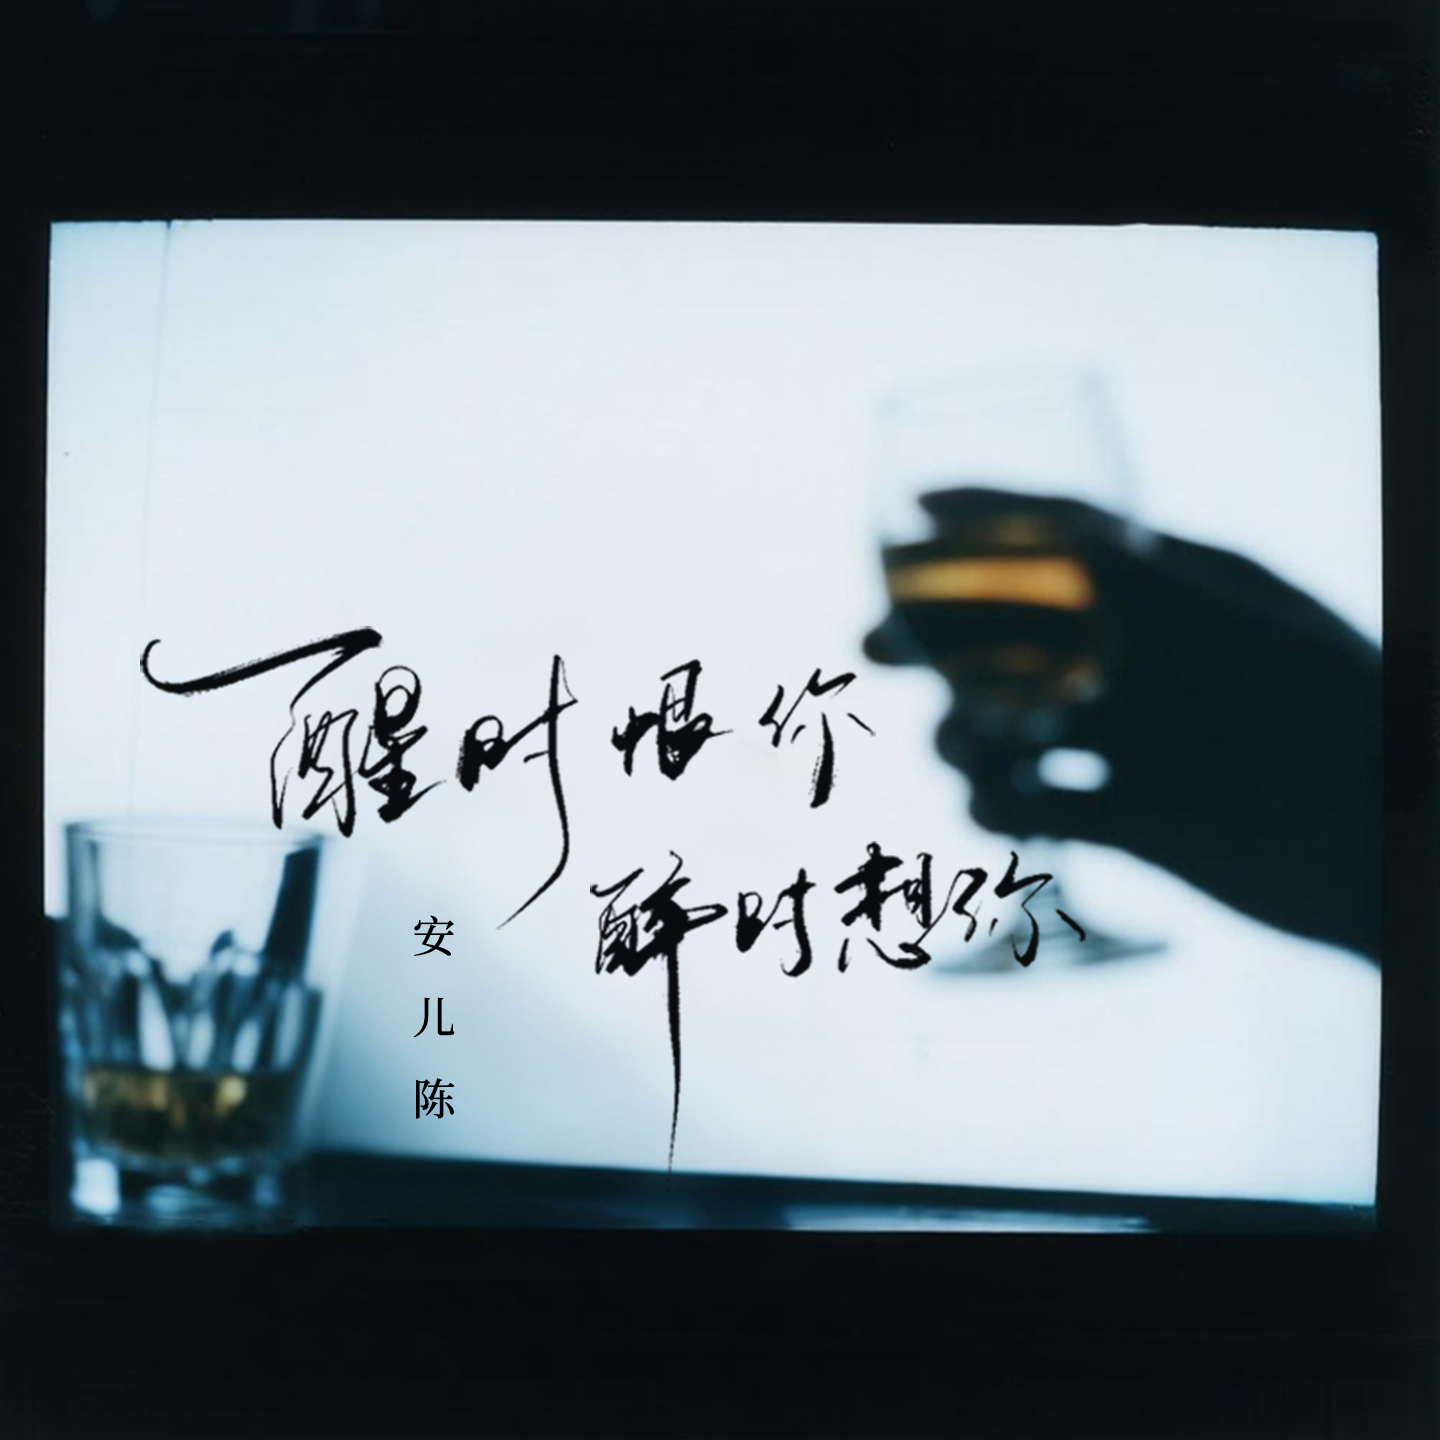 醒时恨你
醉时想你
安儿陈